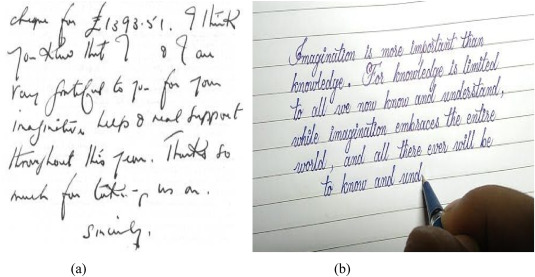 cheque for £1393.51. I think
you know that I & I am
very grateful to you for your
imaginative help & real support
throughout this year. Thanks so
much for taking us on.
sincerely,
(a)
Imagination is more important than
knowledge. For knowledge is limited
to all we now know and understand,
while imagination embraces the entire
world, and all there ever will be
to know and und
(b)